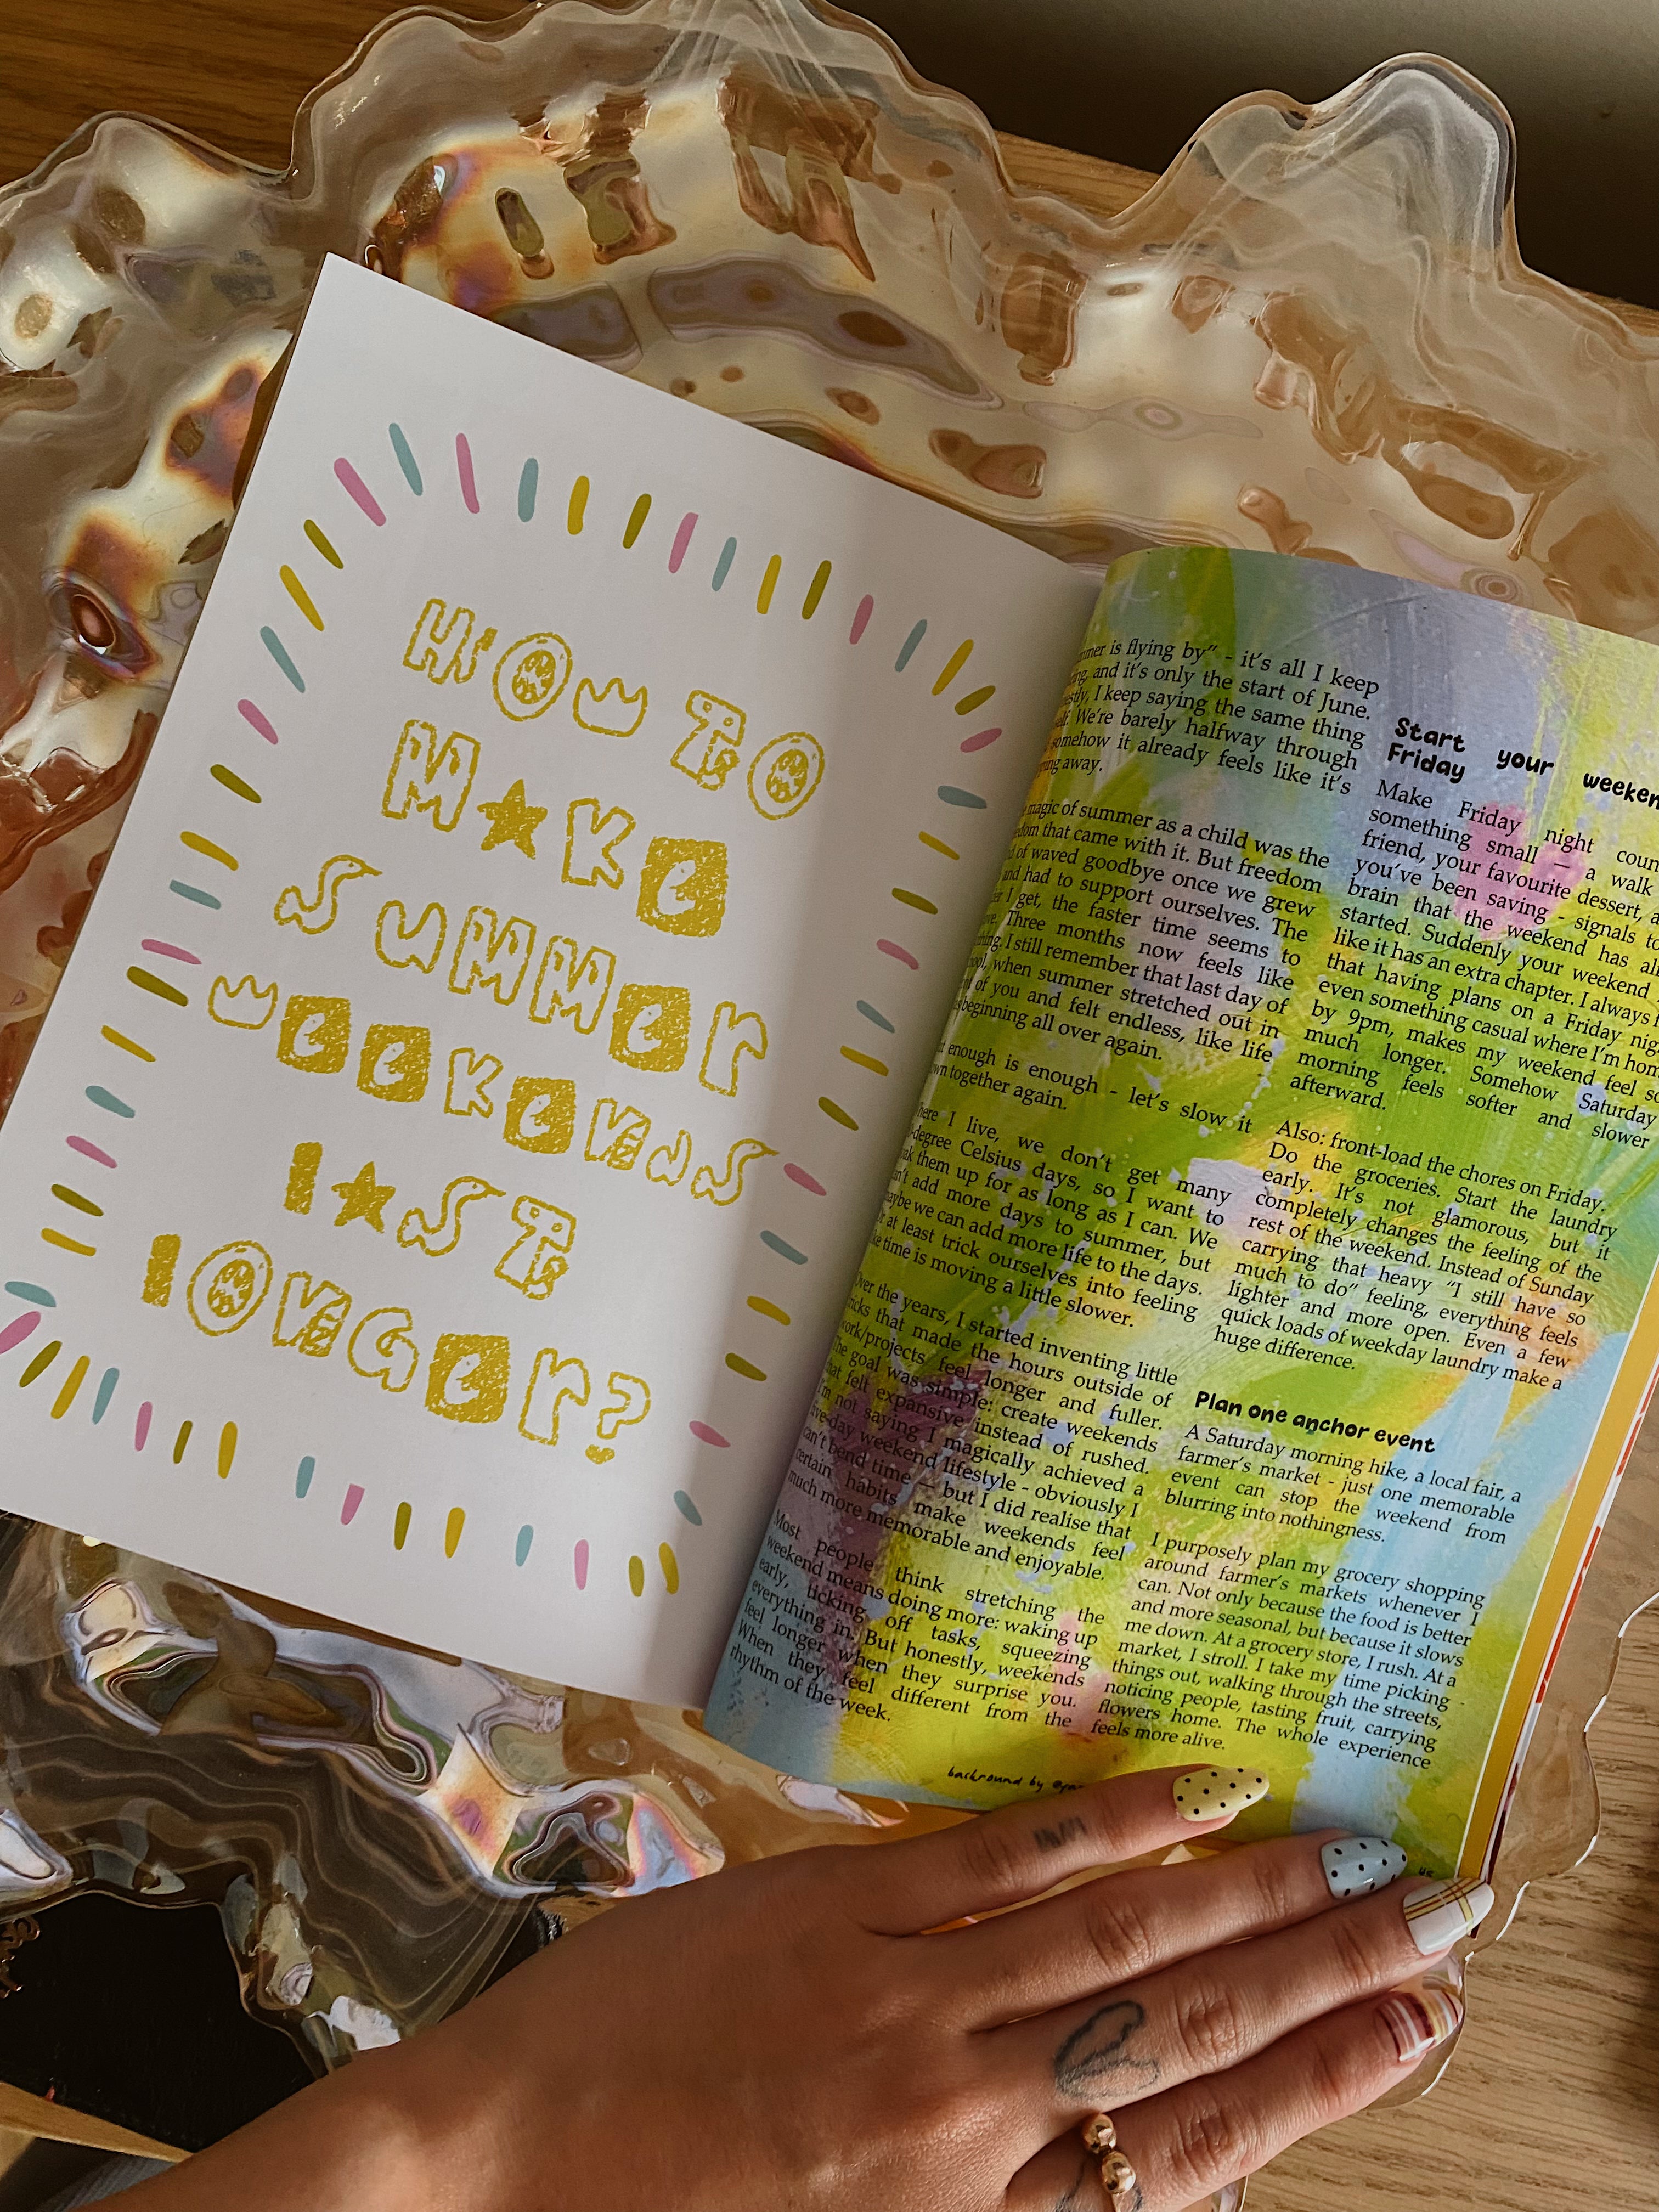 How to
make
summer
weekends
last
longer?
is flying by" - it's all I keep
and it's only the start of June.
I keep saying the same thing
We're barely halfway through
somehow it already feels like it's
away.
magic of summer as a child was the
that came with it. But freedom
of waved goodbye once we grew
and had to support ourselves. The
I get, the faster time seems to
Three months now feels like
I still remember that last day of
when summer stretched out in
of you and felt endless, like life
beginning all over again.
enough is enough - let's slow it
together again.
I live, we don't get many
-degree Celsius days, so I want to
them up for as long as I can. We
add more days to summer, but
maybe we can add more life to the days.
at least trick ourselves into feeling
time is moving a little slower.
Over the years, I started inventing little
tricks that made the hours outside of
work/projects feel longer and fuller.
The goal was simple: create weekends
that felt expansive instead of rushed.
I'm not saying I magically achieved a
five-day weekend lifestyle - obviously I
can't bend time — but I did realise that
certain habits make weekends feel
much more memorable and enjoyable.
Most people think stretching the
weekend means doing more: waking up
early, ticking off tasks, squeezing
everything in. But honestly, weekends
feel longer when they surprise you.
When they feel different from the
rhythm of the week.
Start your
Friday
Make Friday night
something small — a walk
friend, your favourite dessert,
you've been saving - signals to
brain that the weekend has
started. Suddenly your weekend
like it has an extra chapter. I always
that having plans on a Friday
even something casual where I'm
by 9pm, makes my weekend feel
much longer. Somehow Saturday
morning feels softer and slower
afterward.
Also: front-load the chores on Friday.
Do the groceries. Start the laundry
early. It's not glamorous, but it
completely changes the feeling of the
rest of the weekend. Instead of Sunday
carrying that heavy "I still have so
much to do" feeling, everything feels
lighter and more open. Even a few
quick loads of weekday laundry make a
huge difference.
Plan one anchor event
A Saturday morning hike, a local fair, a
farmer's market - just one memorable
event can stop the weekend from
blurring into nothingness.
I purposely plan my grocery shopping
around farmer's markets whenever I
can. Not only because the food is better
and more seasonal, but because it slows
me down. At a grocery store, I rush. At a
market, I stroll. I take my time picking
things out, walking through the streets,
noticing people, tasting fruit, carrying
flowers home. The whole experience
feels more alive.
backround by